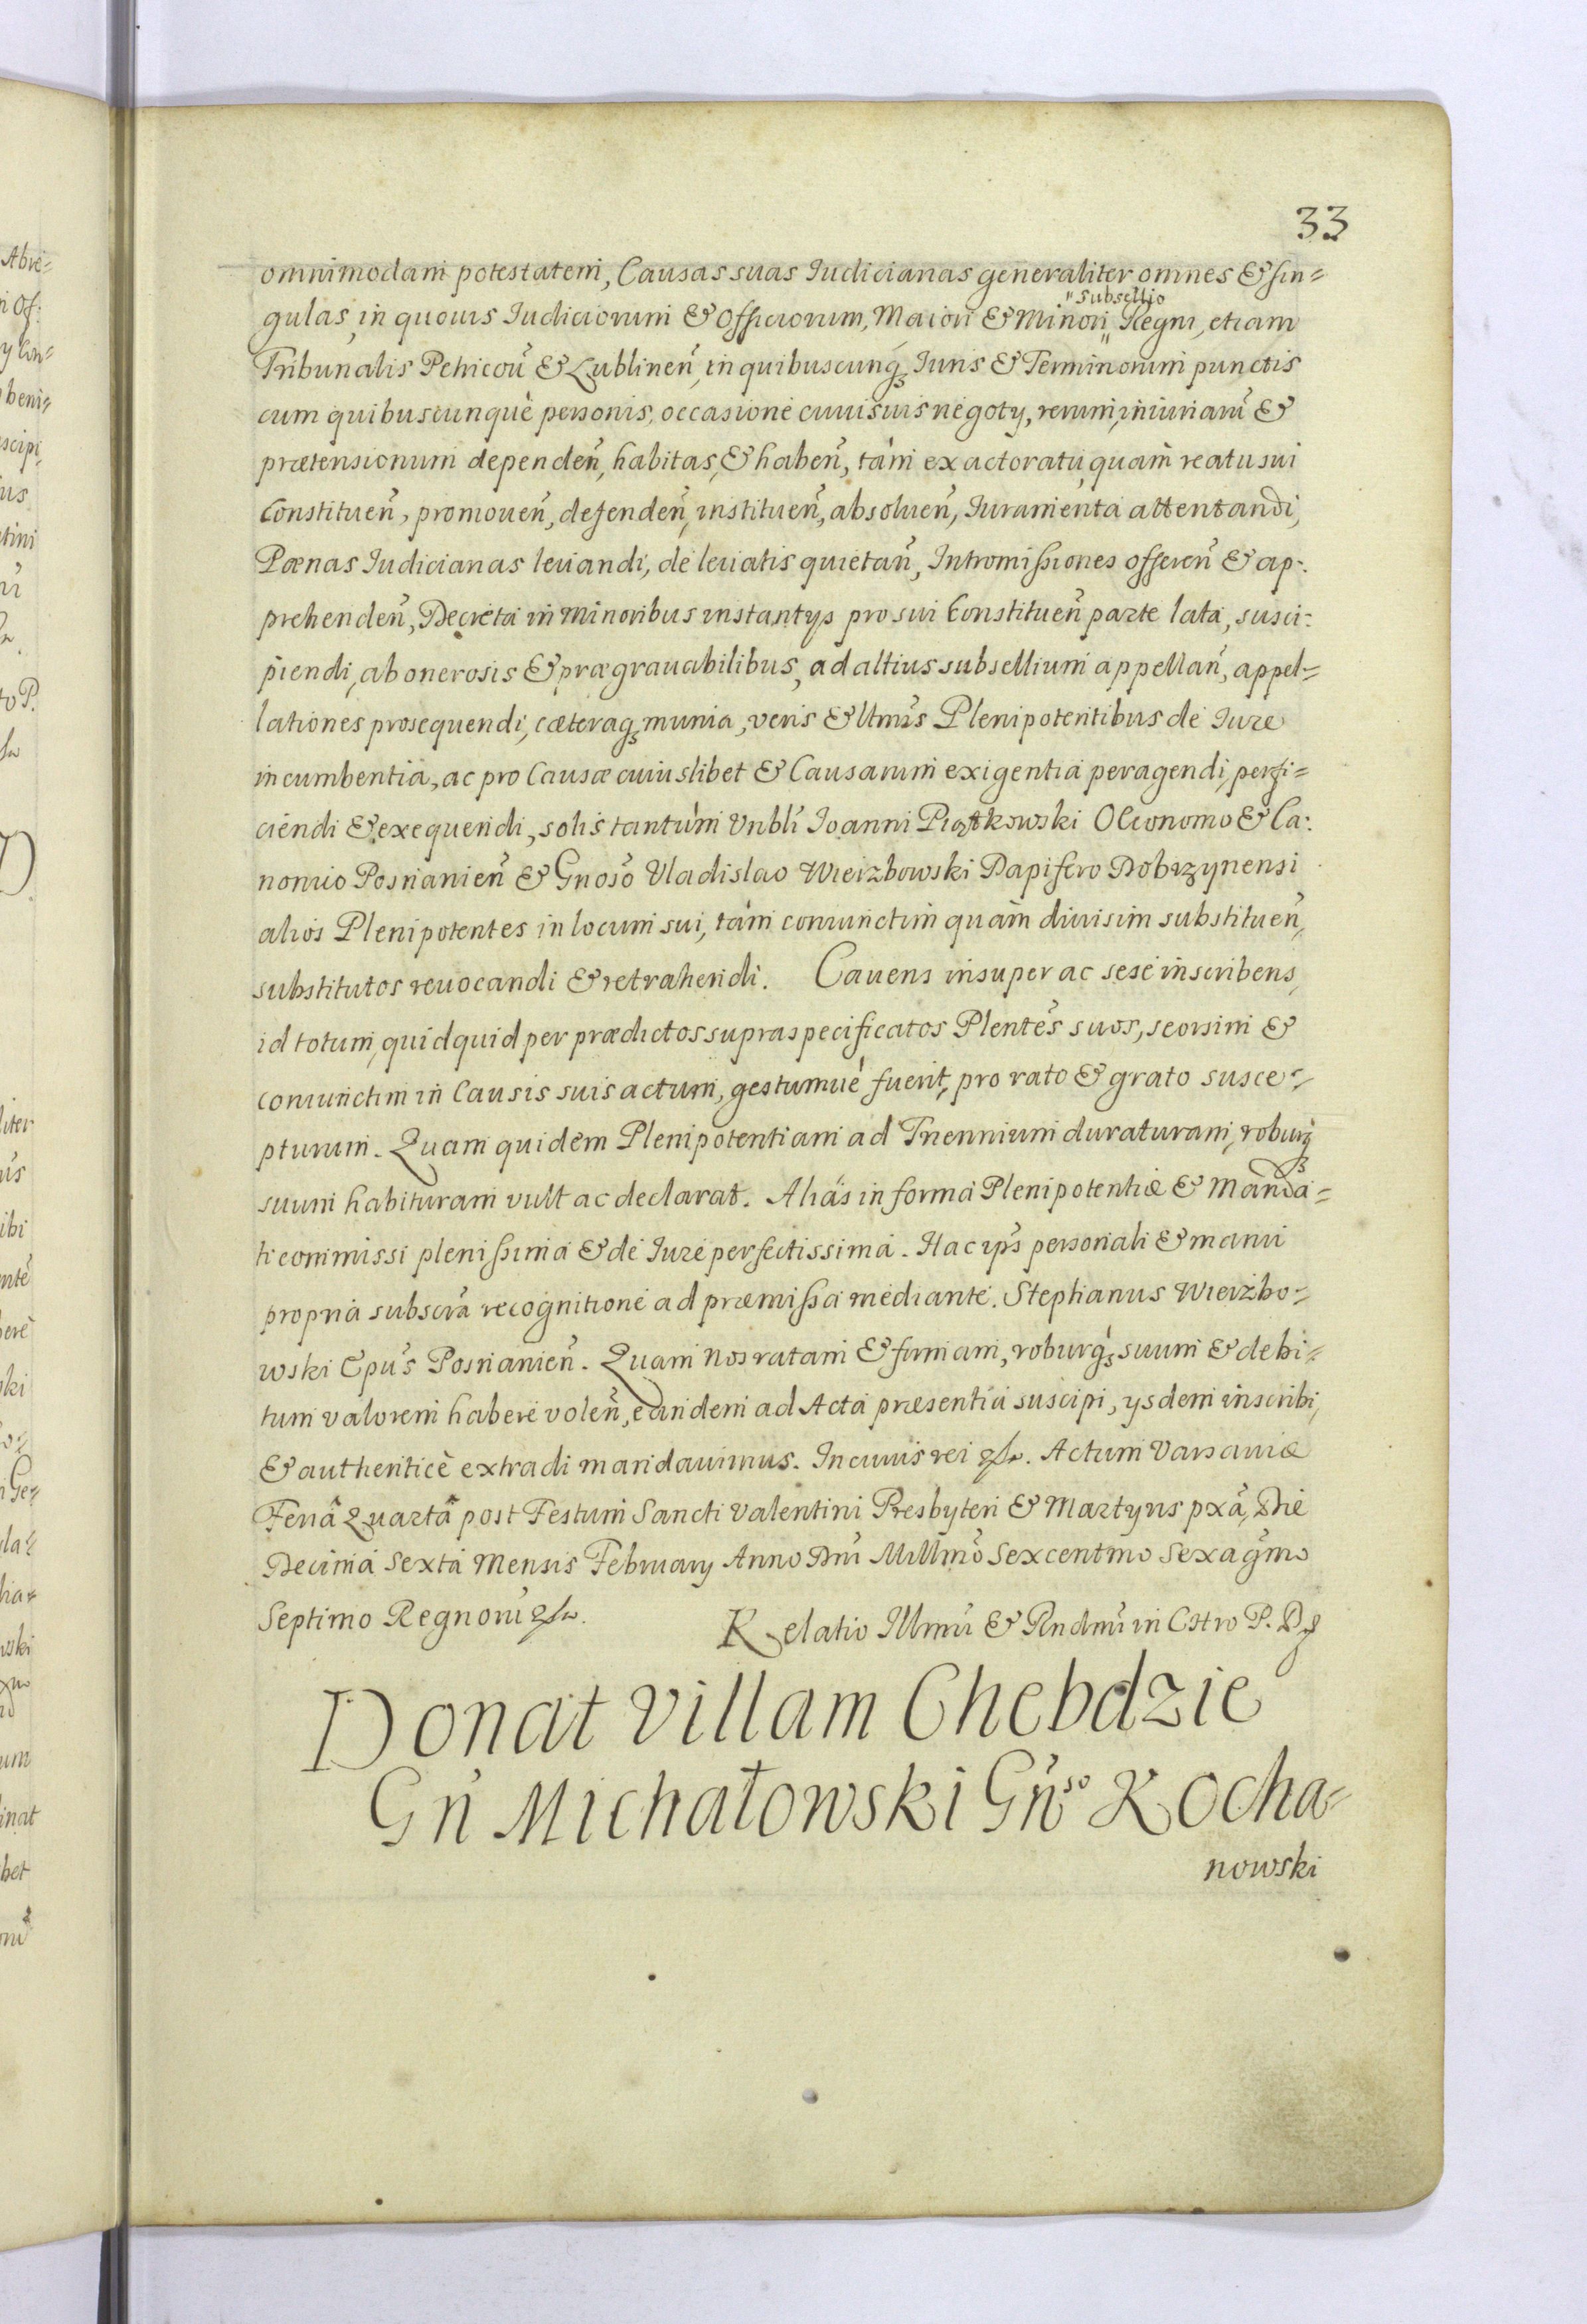 33
omnimodam potestatem, Causas suas Iudicianas generaliter omnes & sin=
"subsellio
gulas, in quovis Iudiciorum & Officiorum, Maiori & Minori " Regni, etiam
Tribunalis Petricou̇ & Lublineñ, in quibuscunq́ꝫ Iuris & Terminorum punctis
cum quibuscunquè personis, occasionè cuiusuis negotÿ, rerum, iniuriarũ &
prætensionum dependeñ, habitas, & habeñ, tàm ex actoratu, quàm reatu sui
Constitueñ, promoueñ, defendeñ, institueñ, absolueñ, Iuramenta attentandi,
Pœnas Iudicianas leuandi, dè leuatis quietañ, Intromissiones offereñ & ap-.
prehendeñ, Decreta in Minoribus instantÿs pro sui Constitueñ parte lata, susci:
piendi, ab onerosis & prægrauabilibus, ad altius subsellium appellañ, appel=
lationes prosequendi, cæteraqꝫ munia, veris & ltm̃is Plenipotentibus dè Iure
incumbentia, ac pro Causæ cuiuslibet & Causarum exigentia peragendi, perfi=
ciendi & exequendi, solis tantùm Vnbli Ioanni Piątkowski Oeconomo & Ca:
nonico Posnanieñ & Gnosõ Vladislao Wierzbowski Dapifero Dobrzynensi
alios Plenipotentes in locum sui, tàm coniunctim quàm diuisim substitueñ,
substitutos reuocandi & retrahendi. Cauens insuper ac sesè inscribens,
id totum, quidquid per prædictos supraspecificatos Plentẽs suos, seorsim &
coniunctim in Causis suis actum, gestumuè fuerit, pro rato & grato susce=
pturum. Quam quidem Plenipotentiam ad Triennium duraturam, roburqꝫ
suum habituram vult ac declarat. Aliàs in forma Plenipotentiæ & Manda=
ti commissi plenissima & dè Iure perfectissima. Hac ip̃s personali & manu
propria subscrã recognitionè ad præmissa mediantè. Stephanus Wierzbo=
wski Epũs Posnanieñ. Quam Nos ratam & firmam, roburq́ꝫ suum & debi=
tum valorem haberè voleñ, eandem ad Acta præsentia suscipi, ÿsdem inscribi,
& authenticè extradi mandauimus. In cuius rei &c. Actum Varsauiæ
Feriâ Quartâ post Festum Sancti Valentini Presbyteri & Martyris pxã, Diè
Decimà Sextà Mensis Februarÿ Anno Dnĩ Millmõ Sexcentmo Sexagm̃o
Septimo Regnorũ &c.
Relatio Illmĩ & Rndmĩ in CHro P. D.
Donat Villam Chebdzie
Gñ Michałowski Gñso Kocha=
nowski